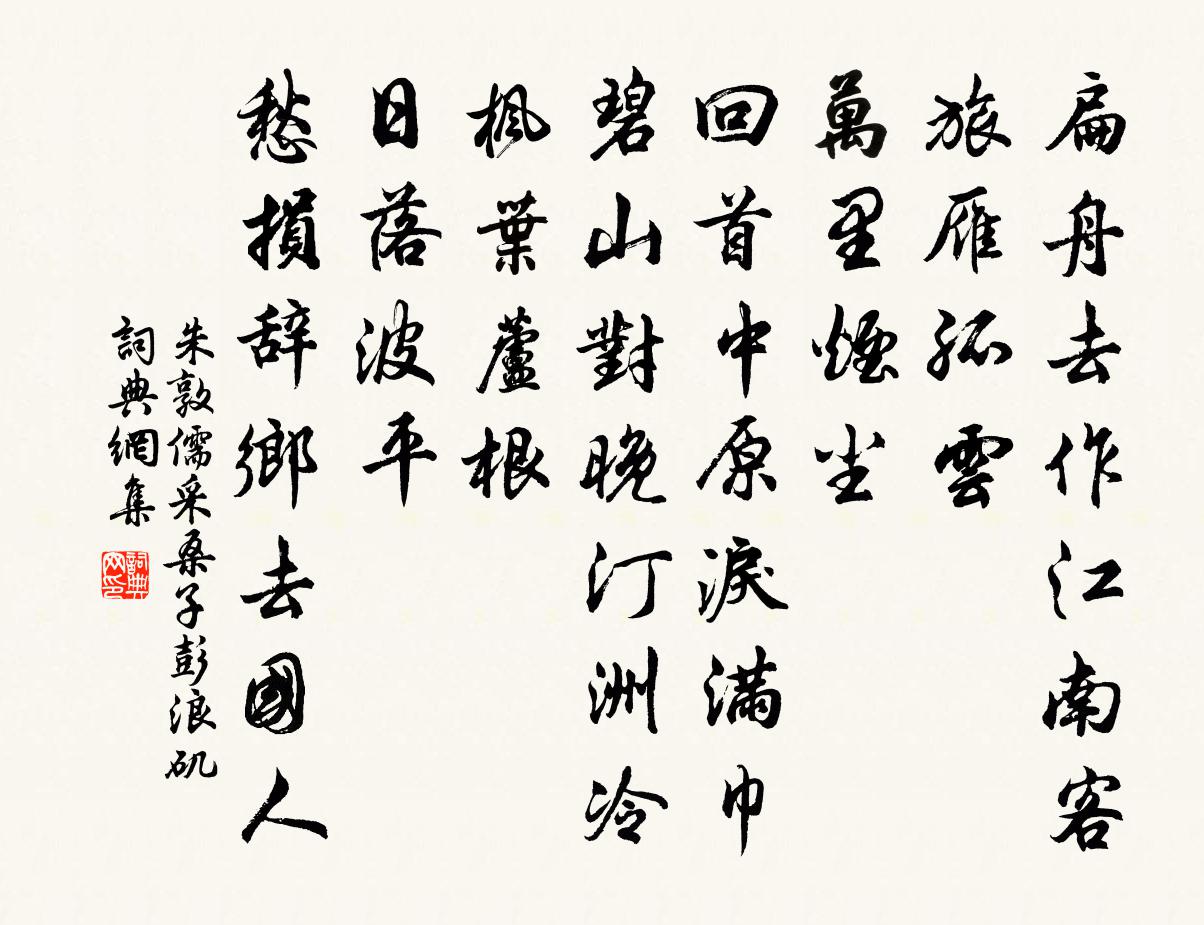 扁舟去作江南客
旅雁孤雲
萬里煙尘
回首中原淚滿巾
碧山對晚汀洲冷
楓葉蘆根
日落波平
愁損辞鄉去國人
朱敦儒采桑子彭浪矶
詞典網集
詞典网印